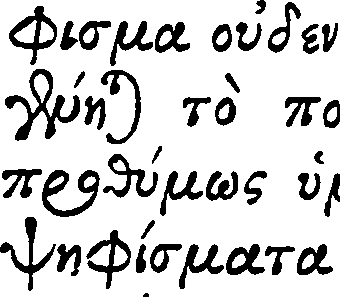 φισμα οὐδεν
γένηται τὸ πο
προθύμως ὑμ
ψηφίσματα